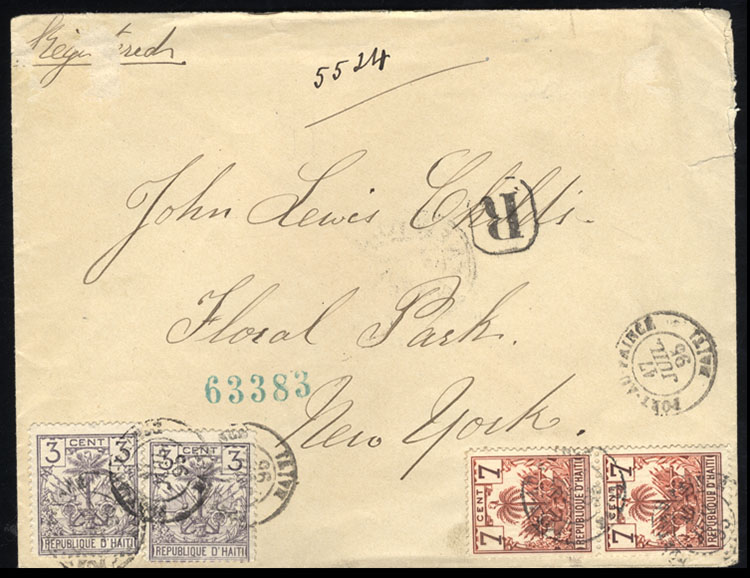 Registered
5524
John Lewis Childs.
R
Floral Park.
63383
New York.
PORT-AU-PRINCE HAITI
17
JUIL
95
3 CENT 3
REPUBLIQUE D'HAITI
3 CENT 3
REPUBLIQUE D'HAITI
HAITI
95
7 CENT 7
REPUBLIQUE D'HAITI
7 CENT 7
REPUBLIQUE D'HAITI